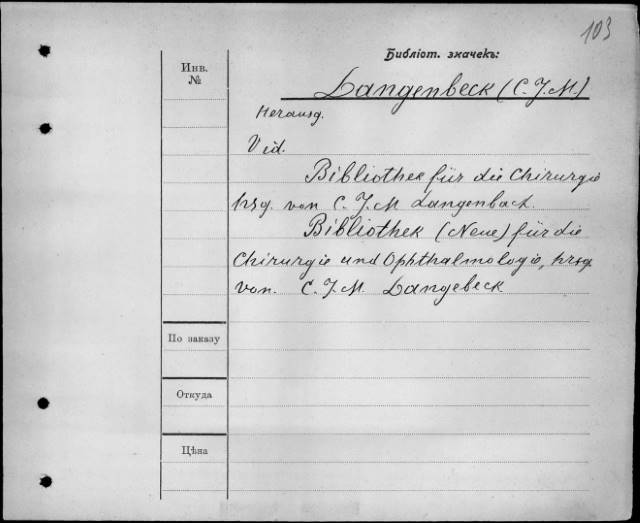 103
Библіот. значекъ:
Инв.
№
Langenbeck (C. J. M.)
Herausg.
Vid.
Bibliothek für die Chirurgie
hrsg. von C. J. M Langenback.
Bibliothek (Neue) für die
Chirurgie und Ophthalmologie, hrsg
von. C. J. M. Langebeck
По заказу
Откуда
Цѣна